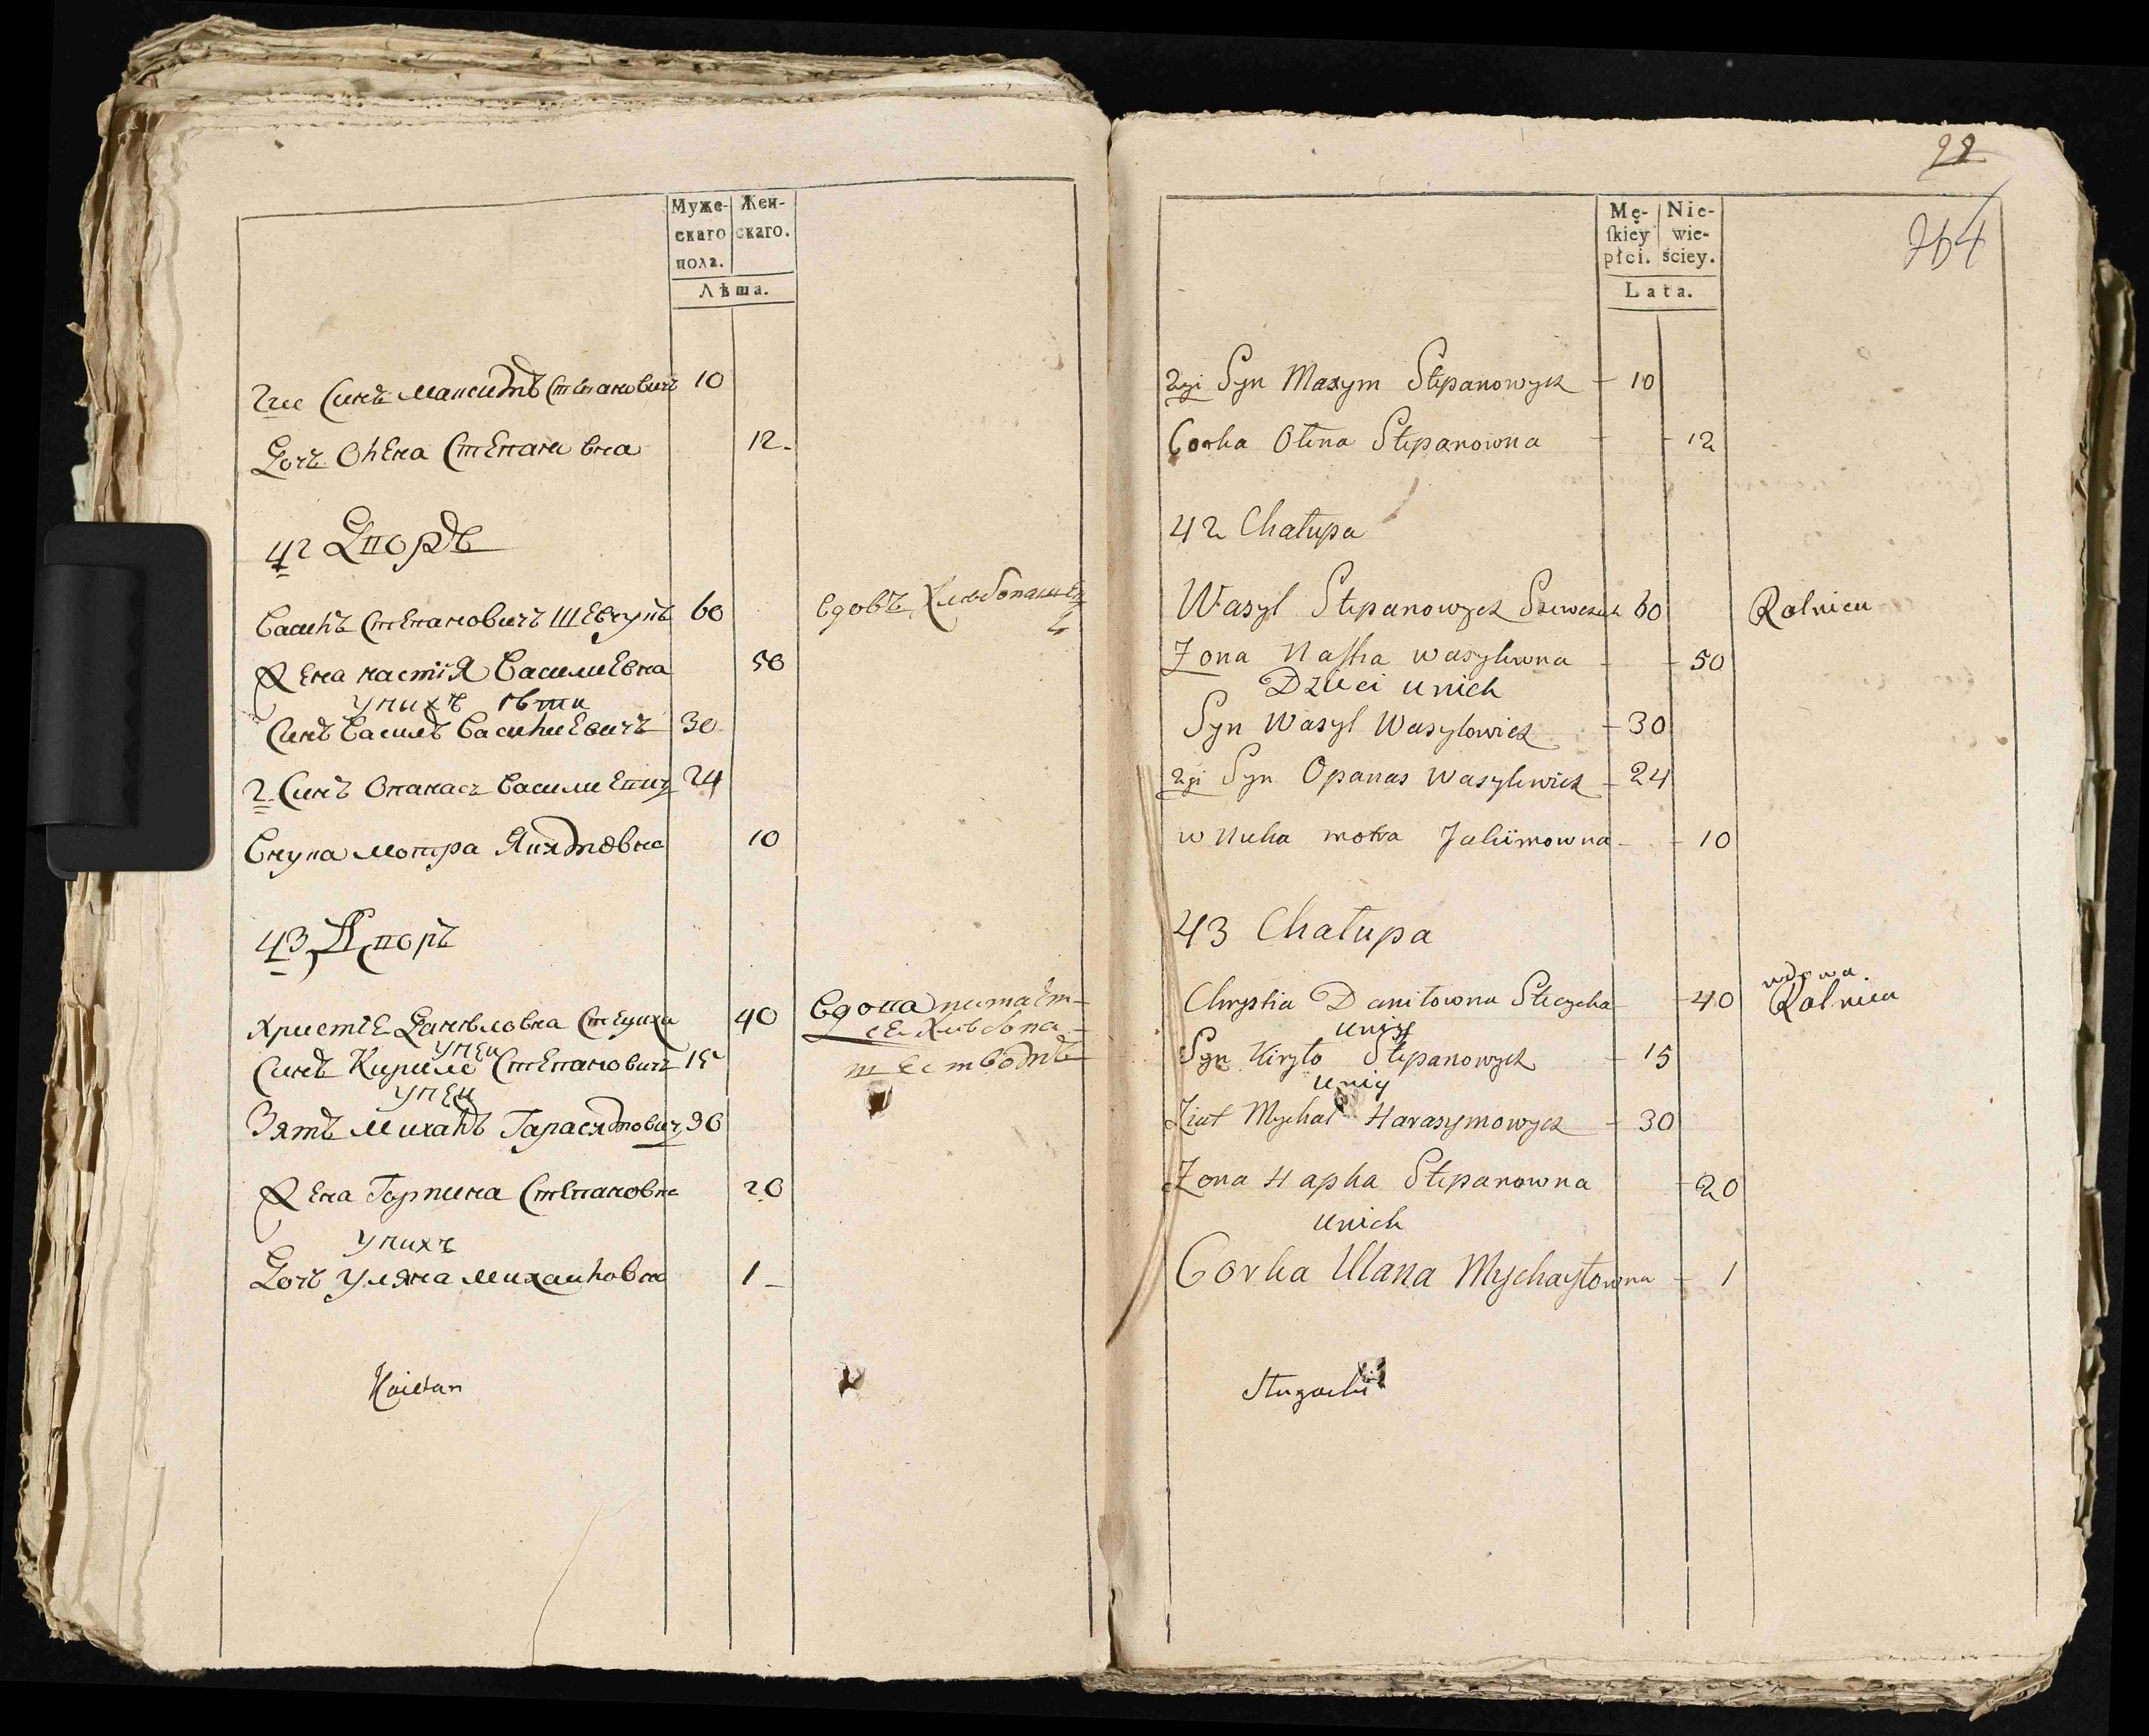 Муже-
Жен-
скаго
скаго.
пола.
Лѣта.
2ге Синъ Максимъ Степановичъ 10
Дочъ Олена Степановна 12
42 Дворъ
Василъ Степановичъ Шевчукъ 60
вдовъ Хлѣбопашец
Жена настія Василиевна 50
у нихъ дѣти
Синъ Василъ Василиевичъ 30
2 Синъ Опанасъ Василиевич 24
Внука мотра Якимовна 10
43 Дворъ
Христіе Даниловна Стециха 40 Вдова питает-
се Хлѣбопа-
у неи
Синъ Кирило Степановичъ 15
шествомъ
у неи
Зятъ Михалъ Гарасимович 30
Жена Горпина Степановна 20
у нихъ
Дочъ Уляна Михаиловна 1
Kaietan
22
264
Mę-
Nie-
ſkiey
wie-
płci.
ściey.
Lata.
2gi Syn Maxym Stepanowycz 10
Corka Olena Stepanowna 12
42 Chałupa
Wasyl Stepanowycz Szewczuk 60 Rolnicu
Zona Naſtia wasylewna 50
Dzieci u nich
Syn Wasyl Wasylowicz 30
2gi Syn Opanas Wasylewicz 24
wnuka motra Jakimowna 10
43 Chałupa
wdowa.
Chrystia Daniłowna Stecycha 40 Rolnica
u niey
Syn Kiryło Stepanowycz 15
u niey
Ziat Mychał Harasymowycz 30
Zona Hapka Stepanowna 20
u nich
Corka Ulana Mychayłowna 1